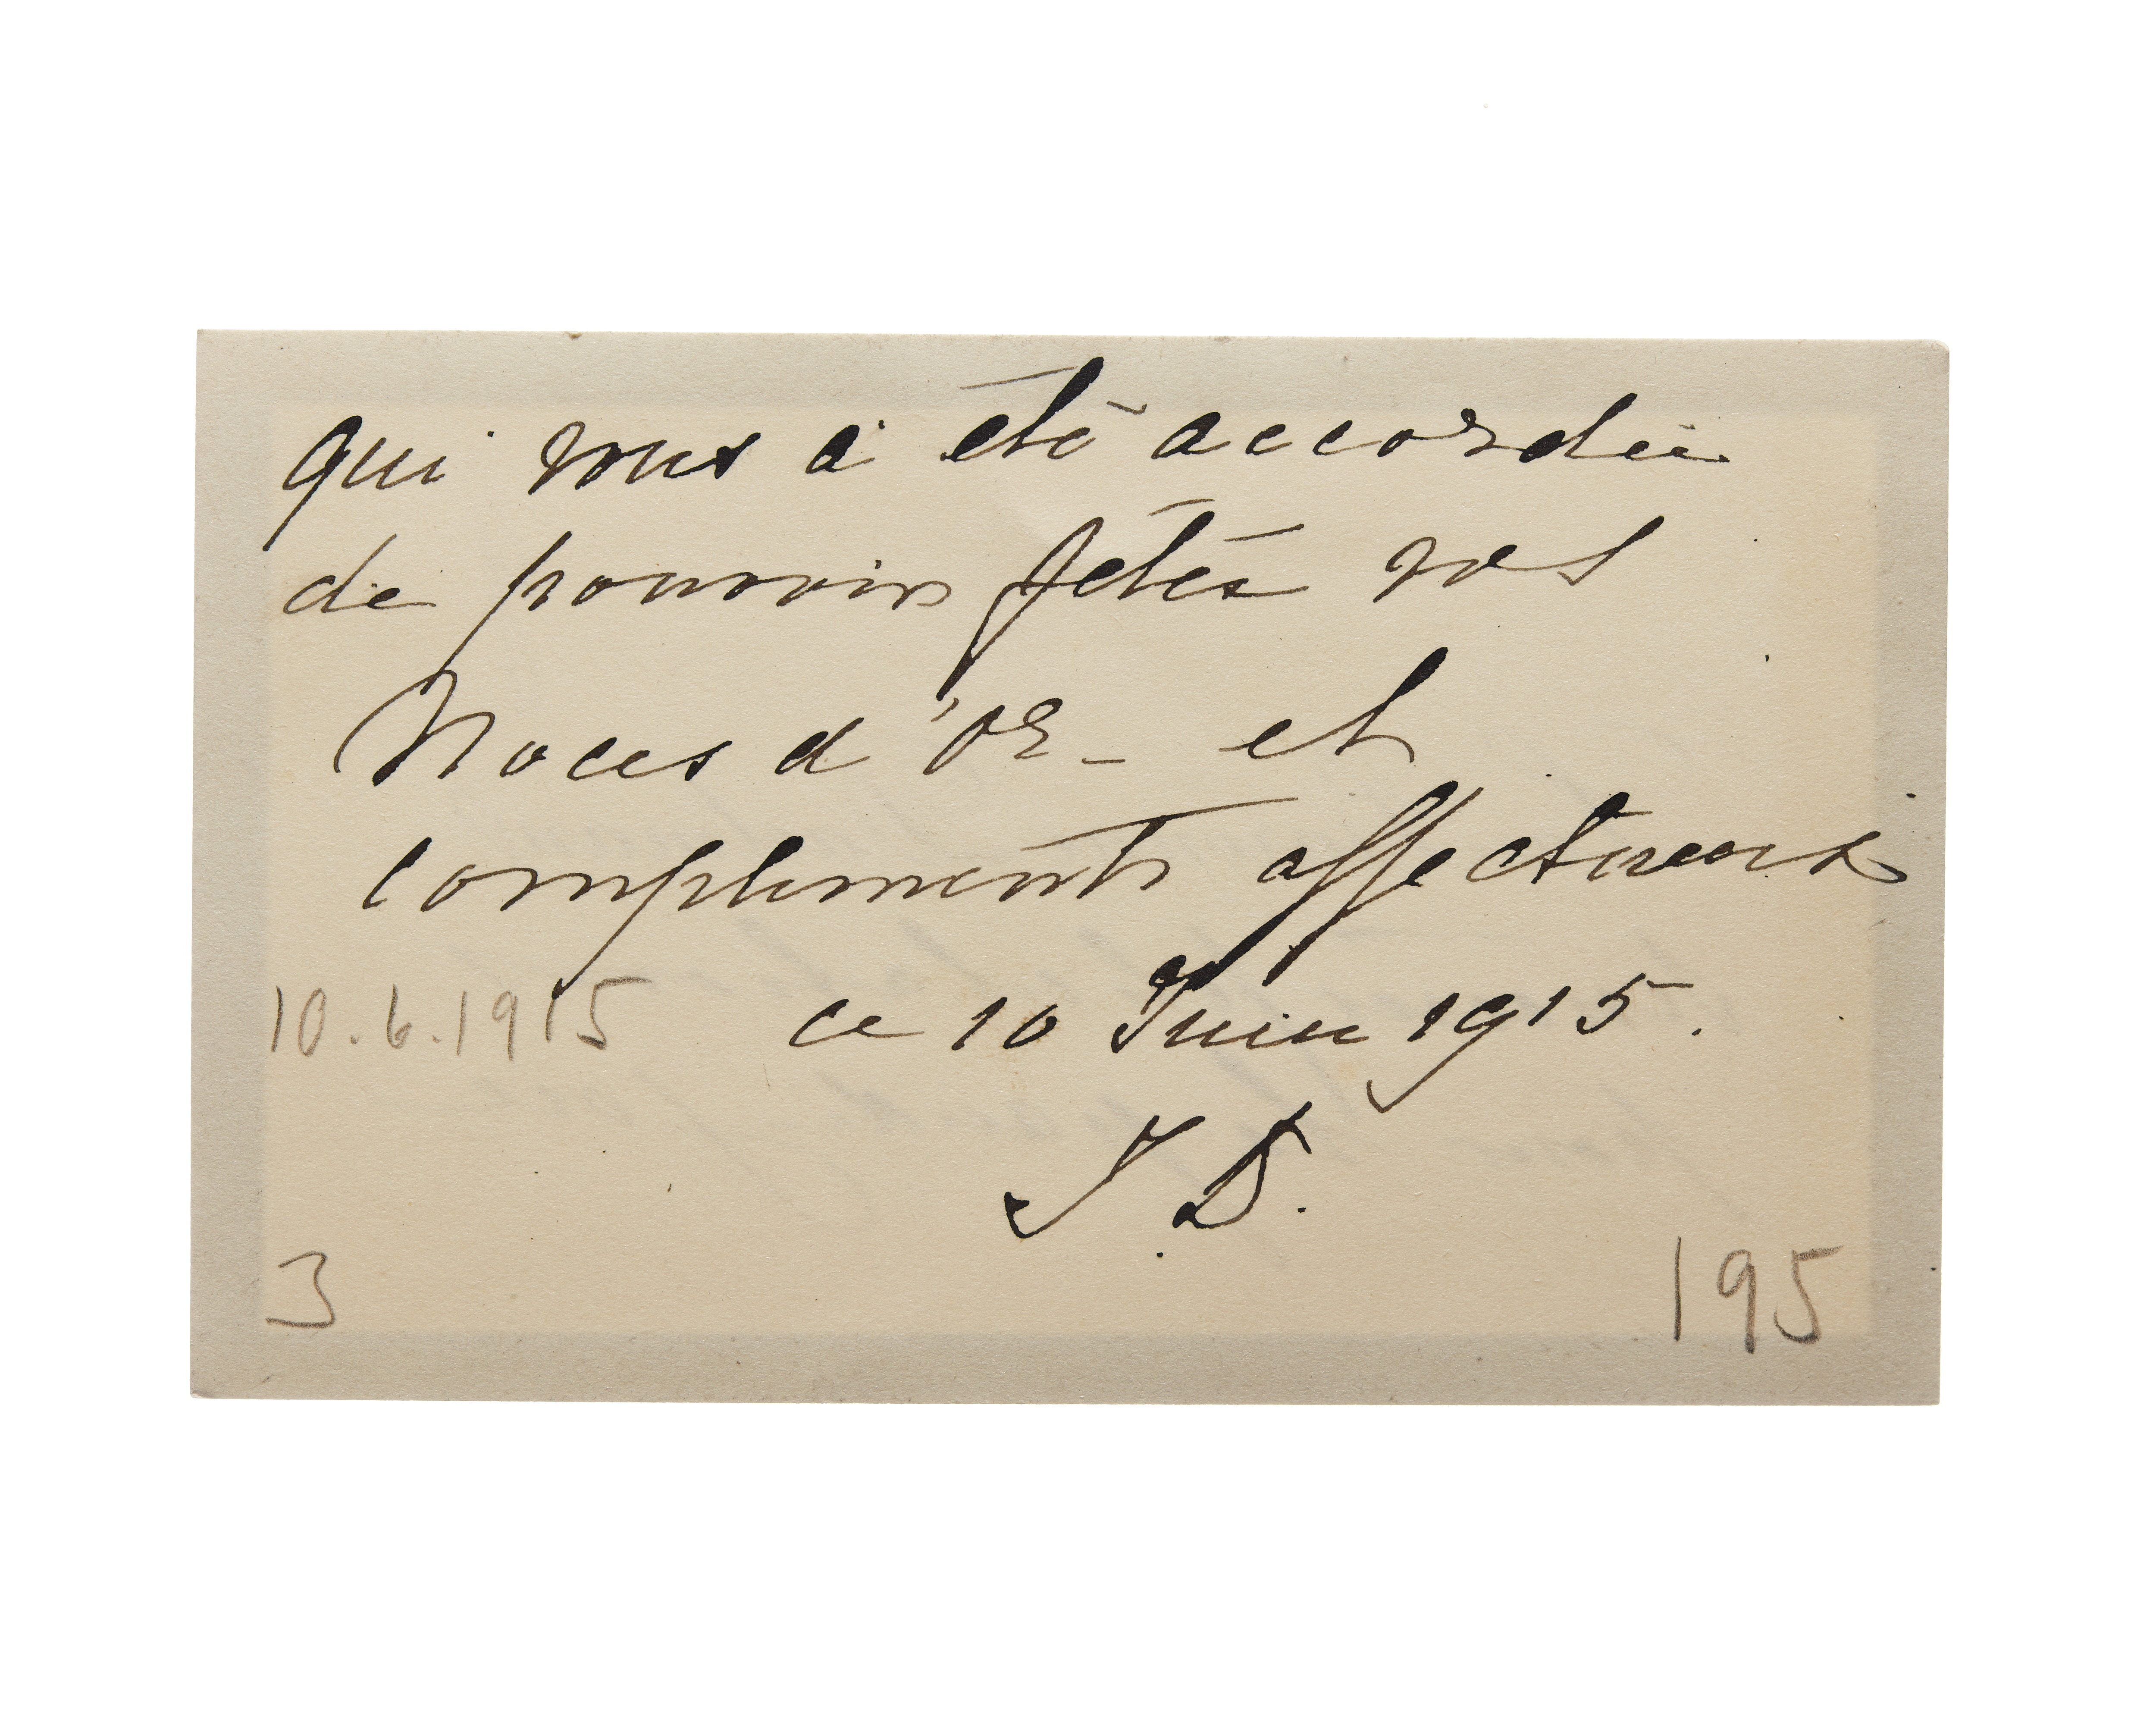 qui vous a été accordée
de pouvoir fêter vos
Noces d'or_ et
compliments affectueux
10.6.1915 ce 10 Juin 1915.
J D.
3 195